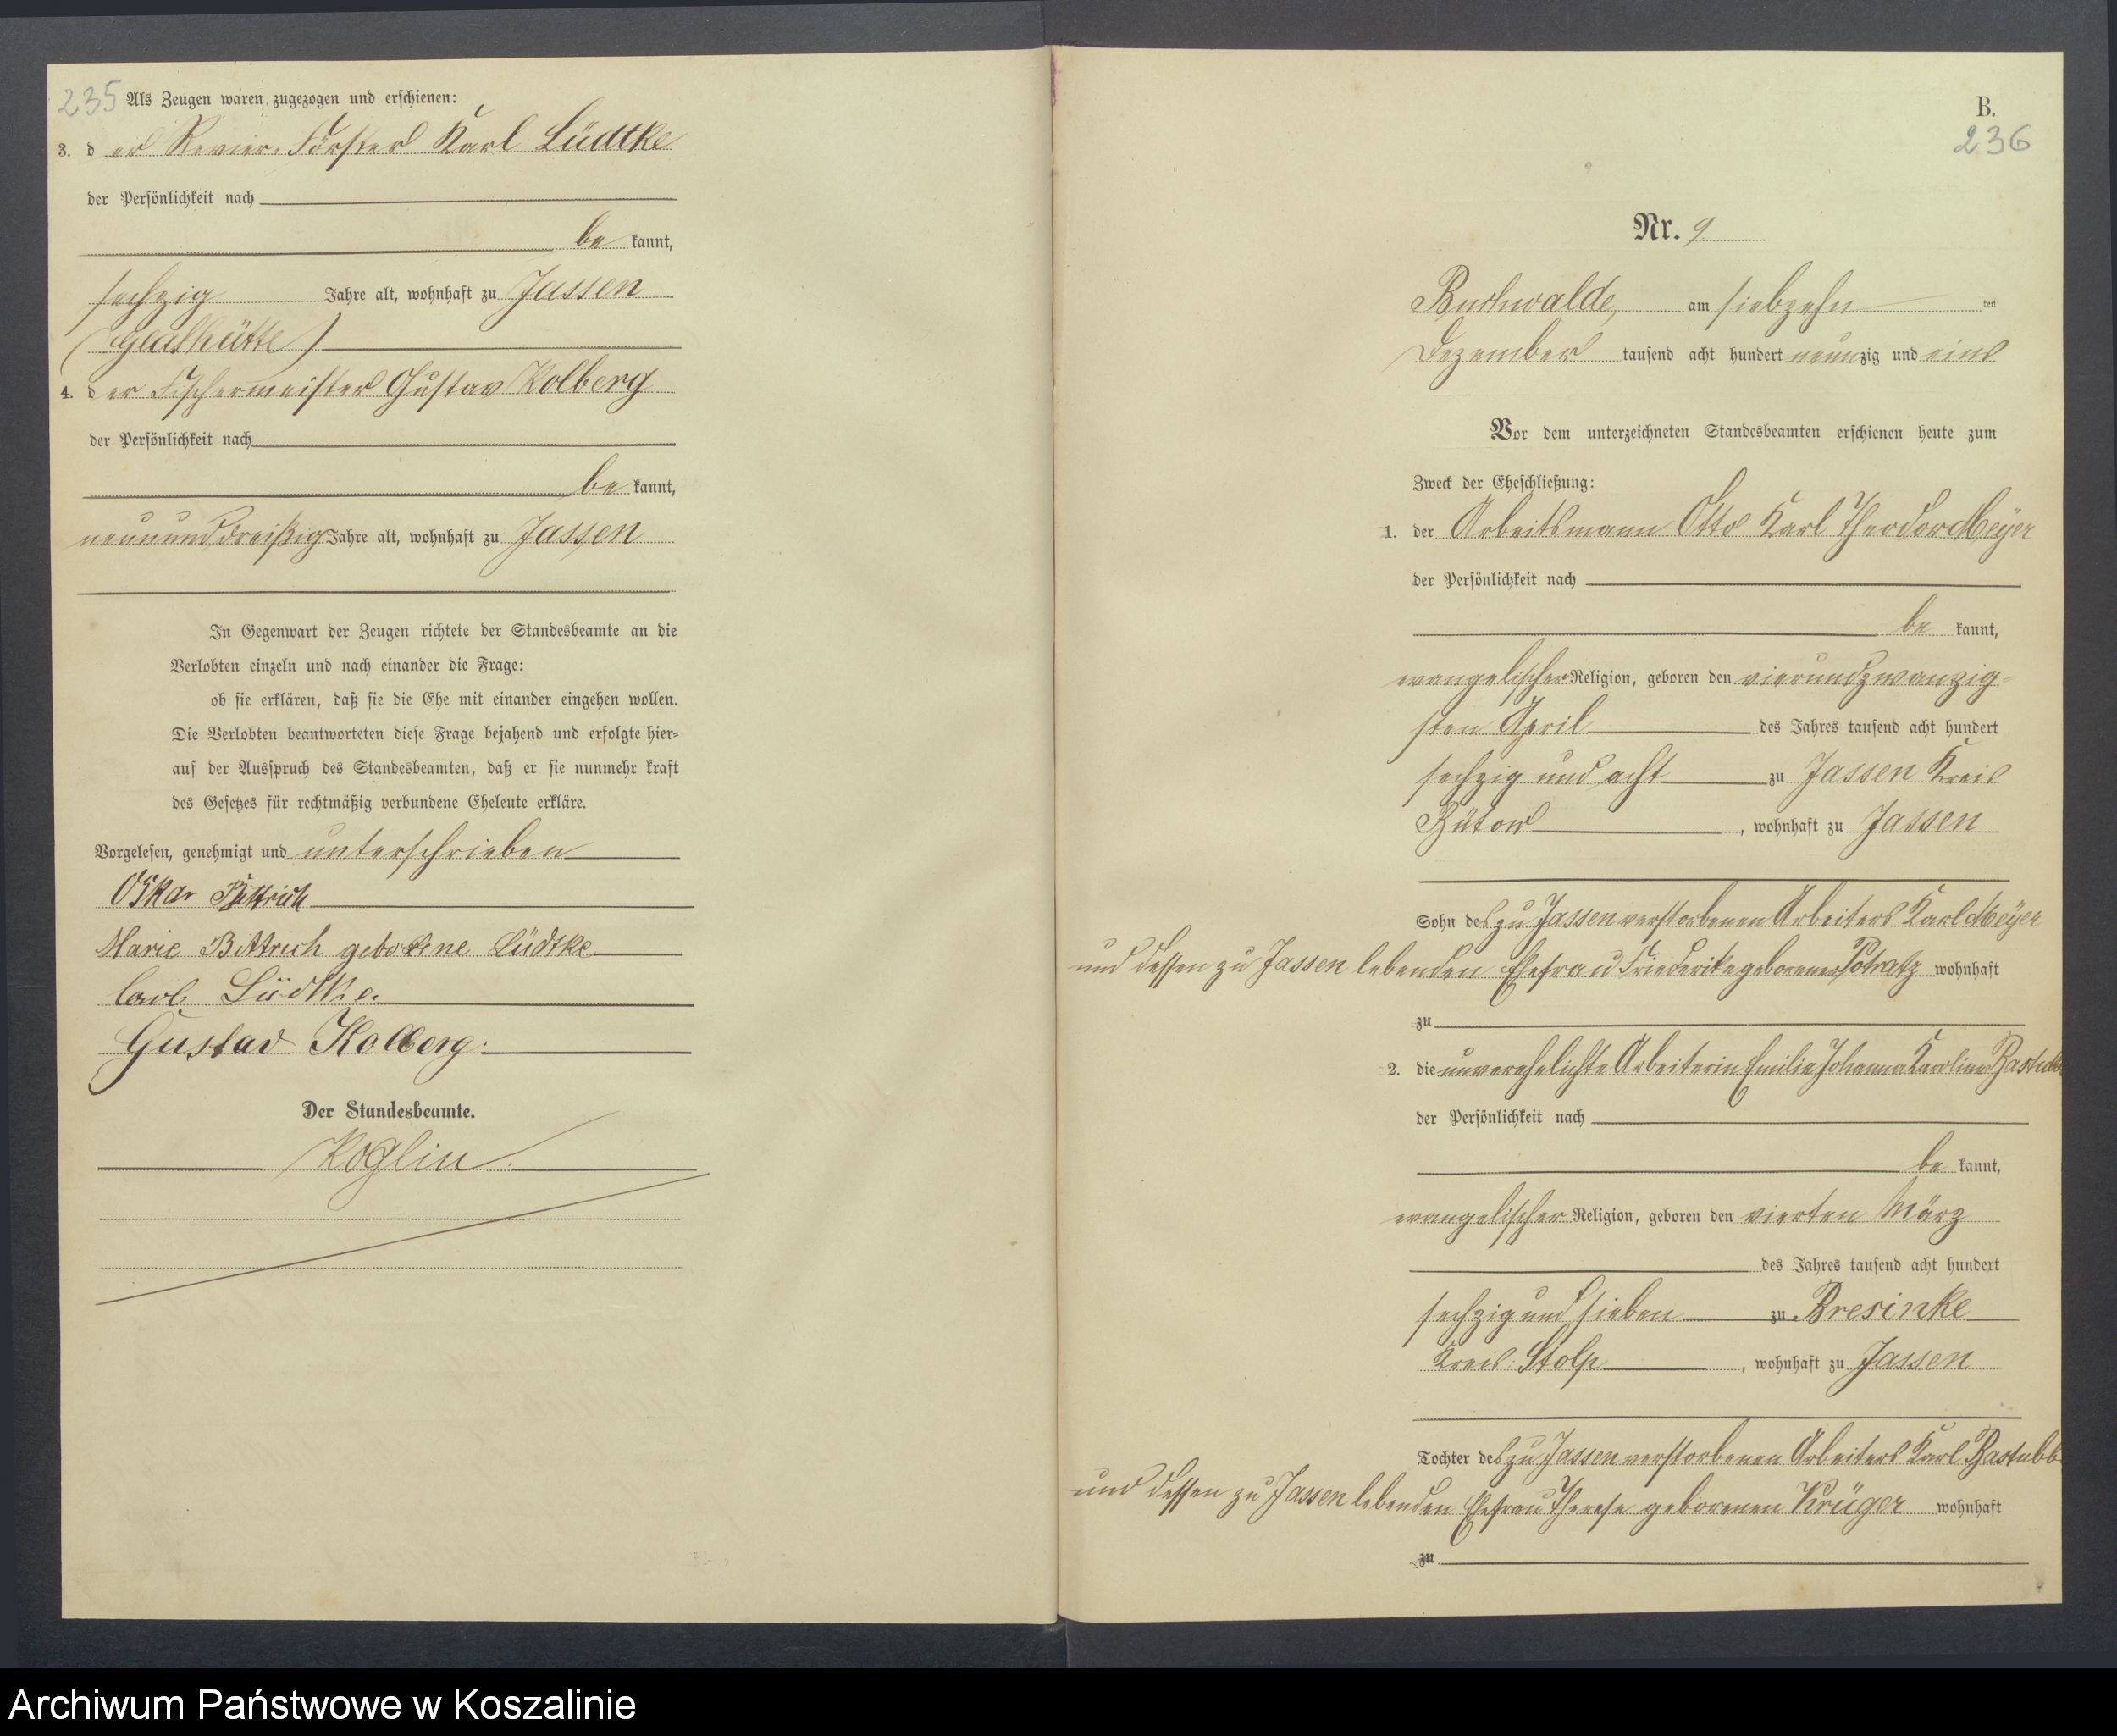 235 Als Zeugen waren zugezogen und erschienen:
3. der Revier-Förster Karl Lüdtke
der Persönlichkeit nach
be kannt,
sechzig Jahre alt, wohnhaft zu Jassen
(Glashütte)
4. der Fischermeister Gustav Kolberg
der Persönlichkeit nach
be kannt,
neununddreißig Jahre alt, wohnhaft zu Jassen
In Gegenwart der Zeugen richtete der Standesbeamte an die
Verlobten einzeln und nach einander die Frage:
ob sie erklären, daß sie die Ehe mit einander eingehen wollen.
Die Verlobten beantworteten diese Frage bejahend und erfolgte hier-
auf der Ausspruch des Standesbeamten, daß er sie nunmehr kraft
des Gesetzes für rechtmäßig verbundene Eheleute erkläre.
Vorgelesen, genehmigt und unterschrieben
Oskar Bittrich
Marie Bittrich geborene Lüdtke
Carl Lüdtke.
Gustav Kolberg.
Der Standesbeamte.
Koglin.
B.
236
Nr. 9
Buchwalde, am siebzehn ten
Dezember tausend acht hundert neunzig und eins
Vor dem unterzeichneten Standesbeamten erschienen heute zum
Zweck der Eheschließung:
1. der Arbeitsmann Otto Karl Theodor Meÿer
der Persönlichkeit nach
be kannt,
evangelischer Religion, geboren den vierundzwanzig-
sten April des Jahres tausend acht hundert
sechzig und acht zu Jassen Kreis
Bütow, wohnhaft zu Jassen
Sohn des zu Jassen verstorbenen Arbeiters Karl Meÿer
und dessen zu Jassen lebenden Ehefrau Friederike geborenen Potratz wohnhaft
zu
2. die unverehelichte Arbeiterin Emilie Johanna Karoline
der Persönlichkeit nach
be kannt,
evangelischer Religion, geboren den vierten März
des Jahres tausend acht hundert
sechzig und sieben zu Bresinke
Kreis Stolp, wohnhaft zu Jassen
Tochter des zu Jassen verstorbenen Arbeiters Karl
und dessen zu Jassen lebenden Ehefrau Therese geborenen Krüger wohnhaft
zu
Archiwum Państwowe w Koszalinie